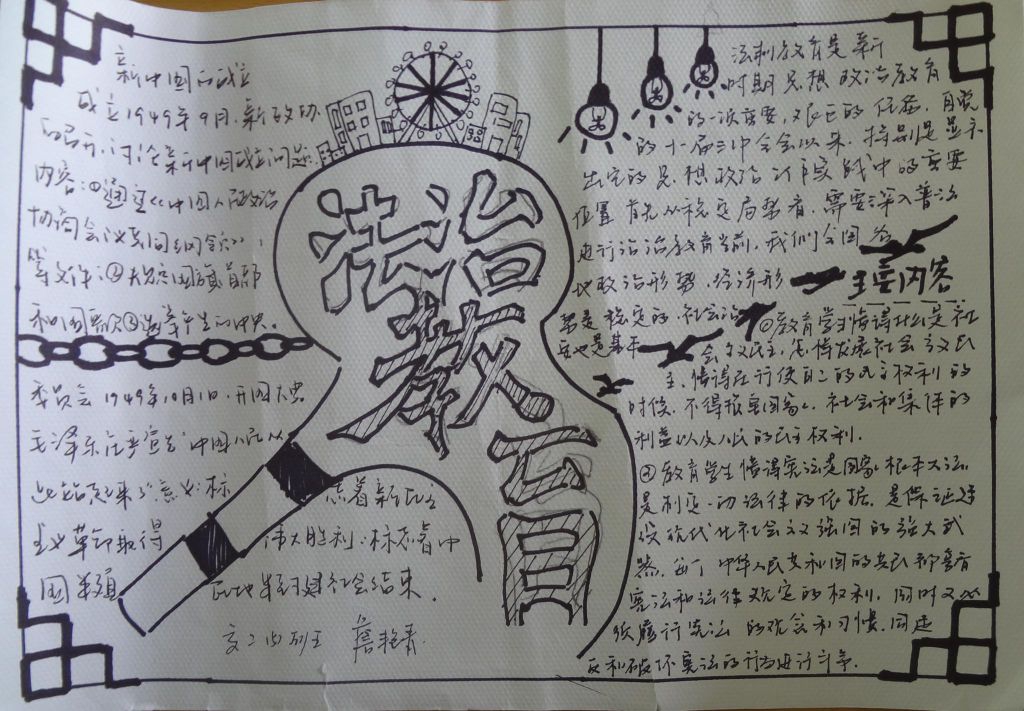 新中国的成立
成立1949年9月,新政协
的召开,讨论新中国成立问题.
内容:①通过《中国人民政治
协商会议共同纲领》,
等文件;②大会国旗首都
和国歌③选举产生的中央
委员会1949年10月1日,开国大典
毛泽东庄严宣告中国人民从
此站起来了意义:标志着新民主
主义革命取得伟大胜利.标志着中
国半殖民地半封建社会结束.
法治
教
育
法制教育是新
时期思想政治教育
的一次重要、艰巨的任务,自党
的十一届三中全会以来,特别是显示
出它的思想政治
位置 首先从稳定局势看,需要深入普法
进行法治教育当前,我们全国各
地政治形势,经济形
势是稳定的,社会治
安也是基本
主要内容
①教育学生懂得什么是社
会主义民主,怎样发展社会主义民
主,懂得在行使自己的民主权利的
时候,不得损害国家、社会和集体的
利益以及人民的民主权利.
②教育学生懂得宪法是国家根本大法
是制定一切法律的依据,是保证建
设现代化社会主义强国的强大武
器.每个中华人民共和国的公民都享有
宪法和法律规定的权利,同时又必
须履行宪法的观念和习惯.同违
反和破坏宪法的行为进行斗争.